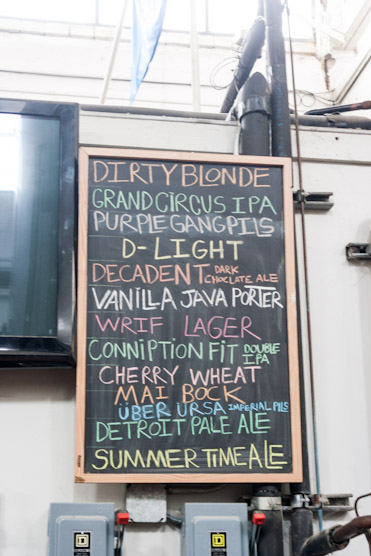 DIRTY BLONDE
GRAND CIRCUS IPA
PURPLE GANG PILS
D-LIGHT
DECADENT DARK CHOCLATE ALE
VANILLA JAVA PORTER
WRIF LAGER
CONNIPTION FIT DOUBLE IPA
CHERRY WHEAT
MAI BOCK
ÜBER URSA IMPERIAL PILS
DETROIT PALE ALE
SUMMER TIME ALE